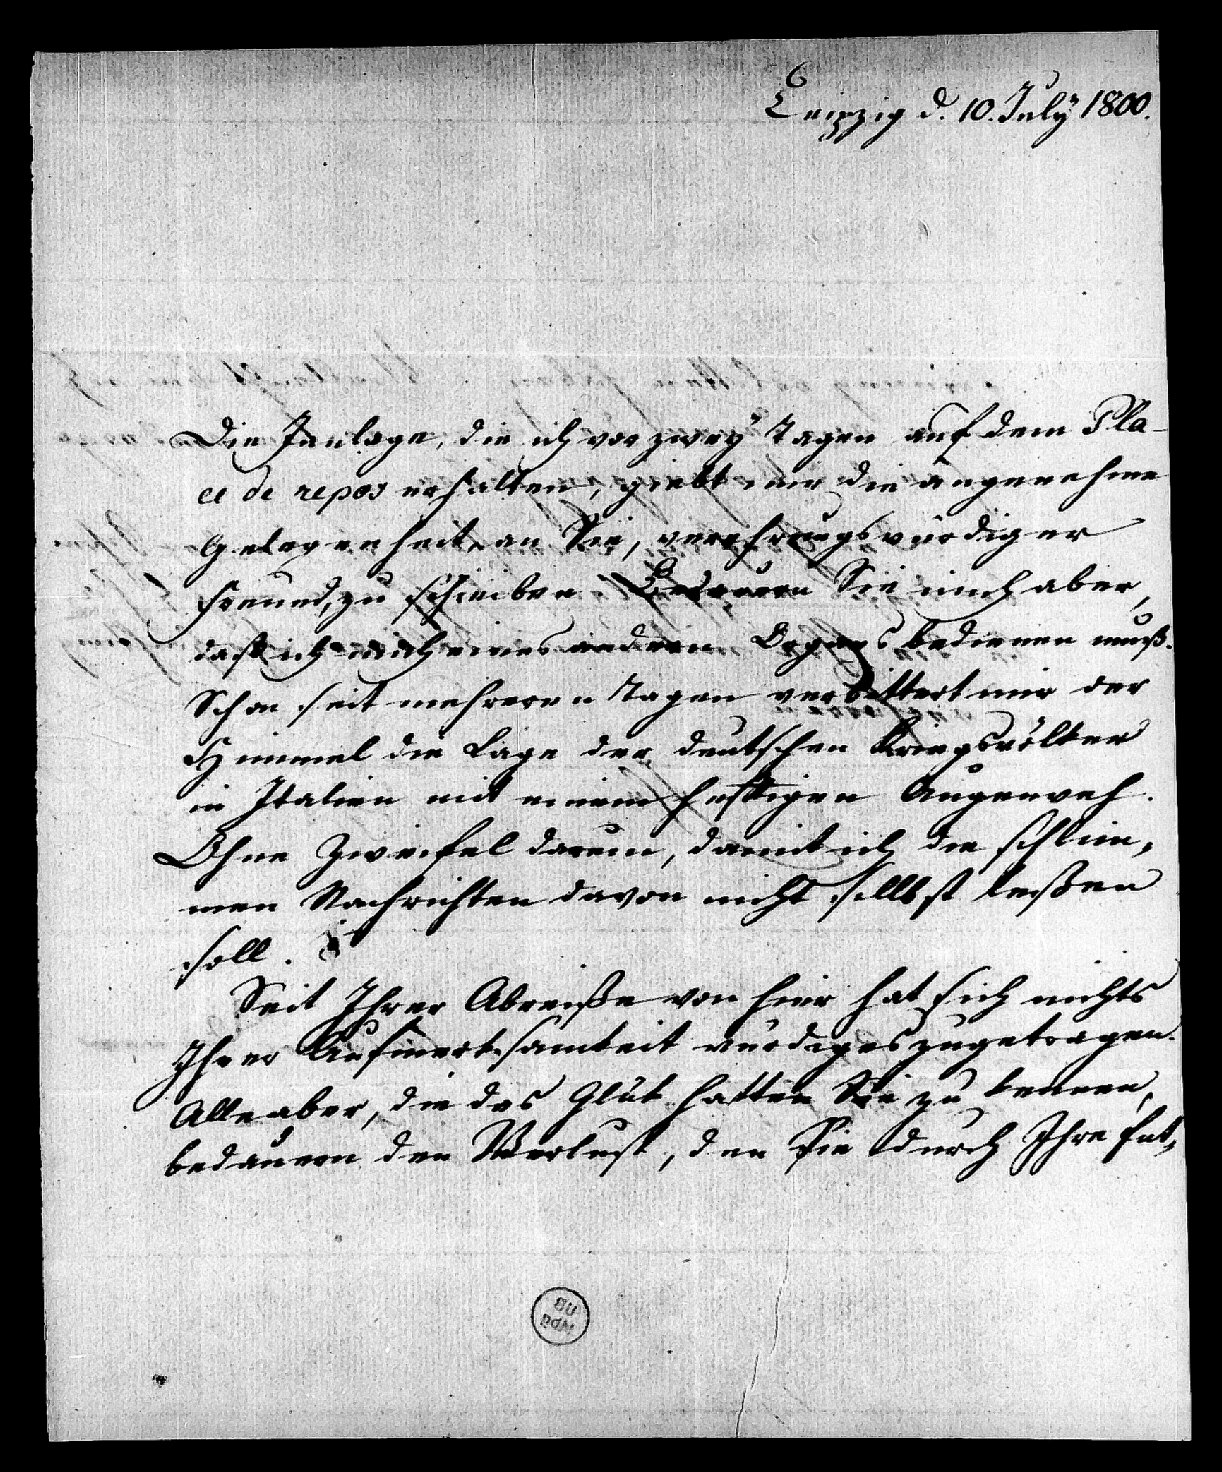 Leipzig d. 10. July 1800.
Die Innlage, die ich vor zwey Tagen auf dem Pla-
ce de repos erhalten, giebt mir die angenehme
Gelegenheit, an Sie, verehrungswürdiger
Freund, zu schreiben. Bedauern Sie mich aber,
daß ich mich eines andern Organs bedienen muß.
Schon seit mehreren Tagen verbittert mir der
Himmel die Lage der deutschen Kriegsvölker
in Italien mit einem heftigen Augenweh.
Ohne Zweifel darum, damit ich die schlim-
men Nachrichten davon nicht selbst leßen
soll.
Seit Ihrer Abreiße von hier hat sich nichts
Ihrer Aufmerksamkeit würdiges zugetragen.
Alle aber, die das Glük hatten Sie zu kennen,
bedauern den Verlust, den sie durch Ihre Ent-